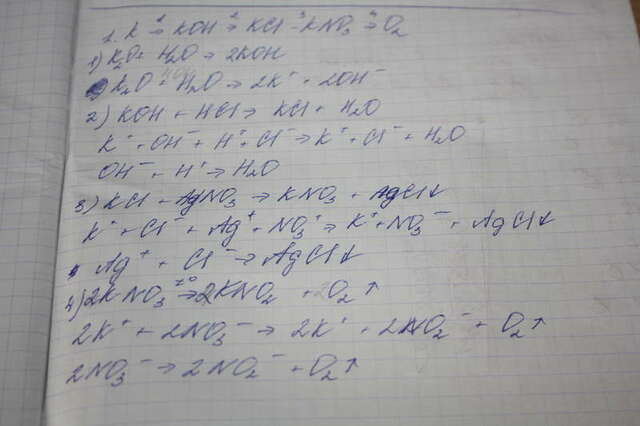 1. K →¹ KOH →² KCl →³ KNO₃ →⁴ O₂
1) K₂O + H₂O → 2KOH
K₂O + H₂O → 2K⁺ + 2OH⁻
2) KOH + HCl → KCl + H₂O
K⁺ + OH⁻ + H⁺ + Cl⁻ → K⁺ + Cl⁻ + H₂O
OH⁻ + H⁺ → H₂O
3) KCl + AgNO₃ → KNO₃ + AgCl↓
K⁺ + Cl⁻ + Ag⁺ + NO₃⁻ → K⁺ + NO₃⁻ + AgCl↓
Ag⁺ + Cl⁻ → AgCl↓
4) 2KNO₃ →t° 2KNO₂ + O₂↑
2K⁺ + 2NO₃⁻ → 2K⁺ + 2NO₂⁻ + O₂↑
2NO₃⁻ → 2NO₂⁻ + O₂↑